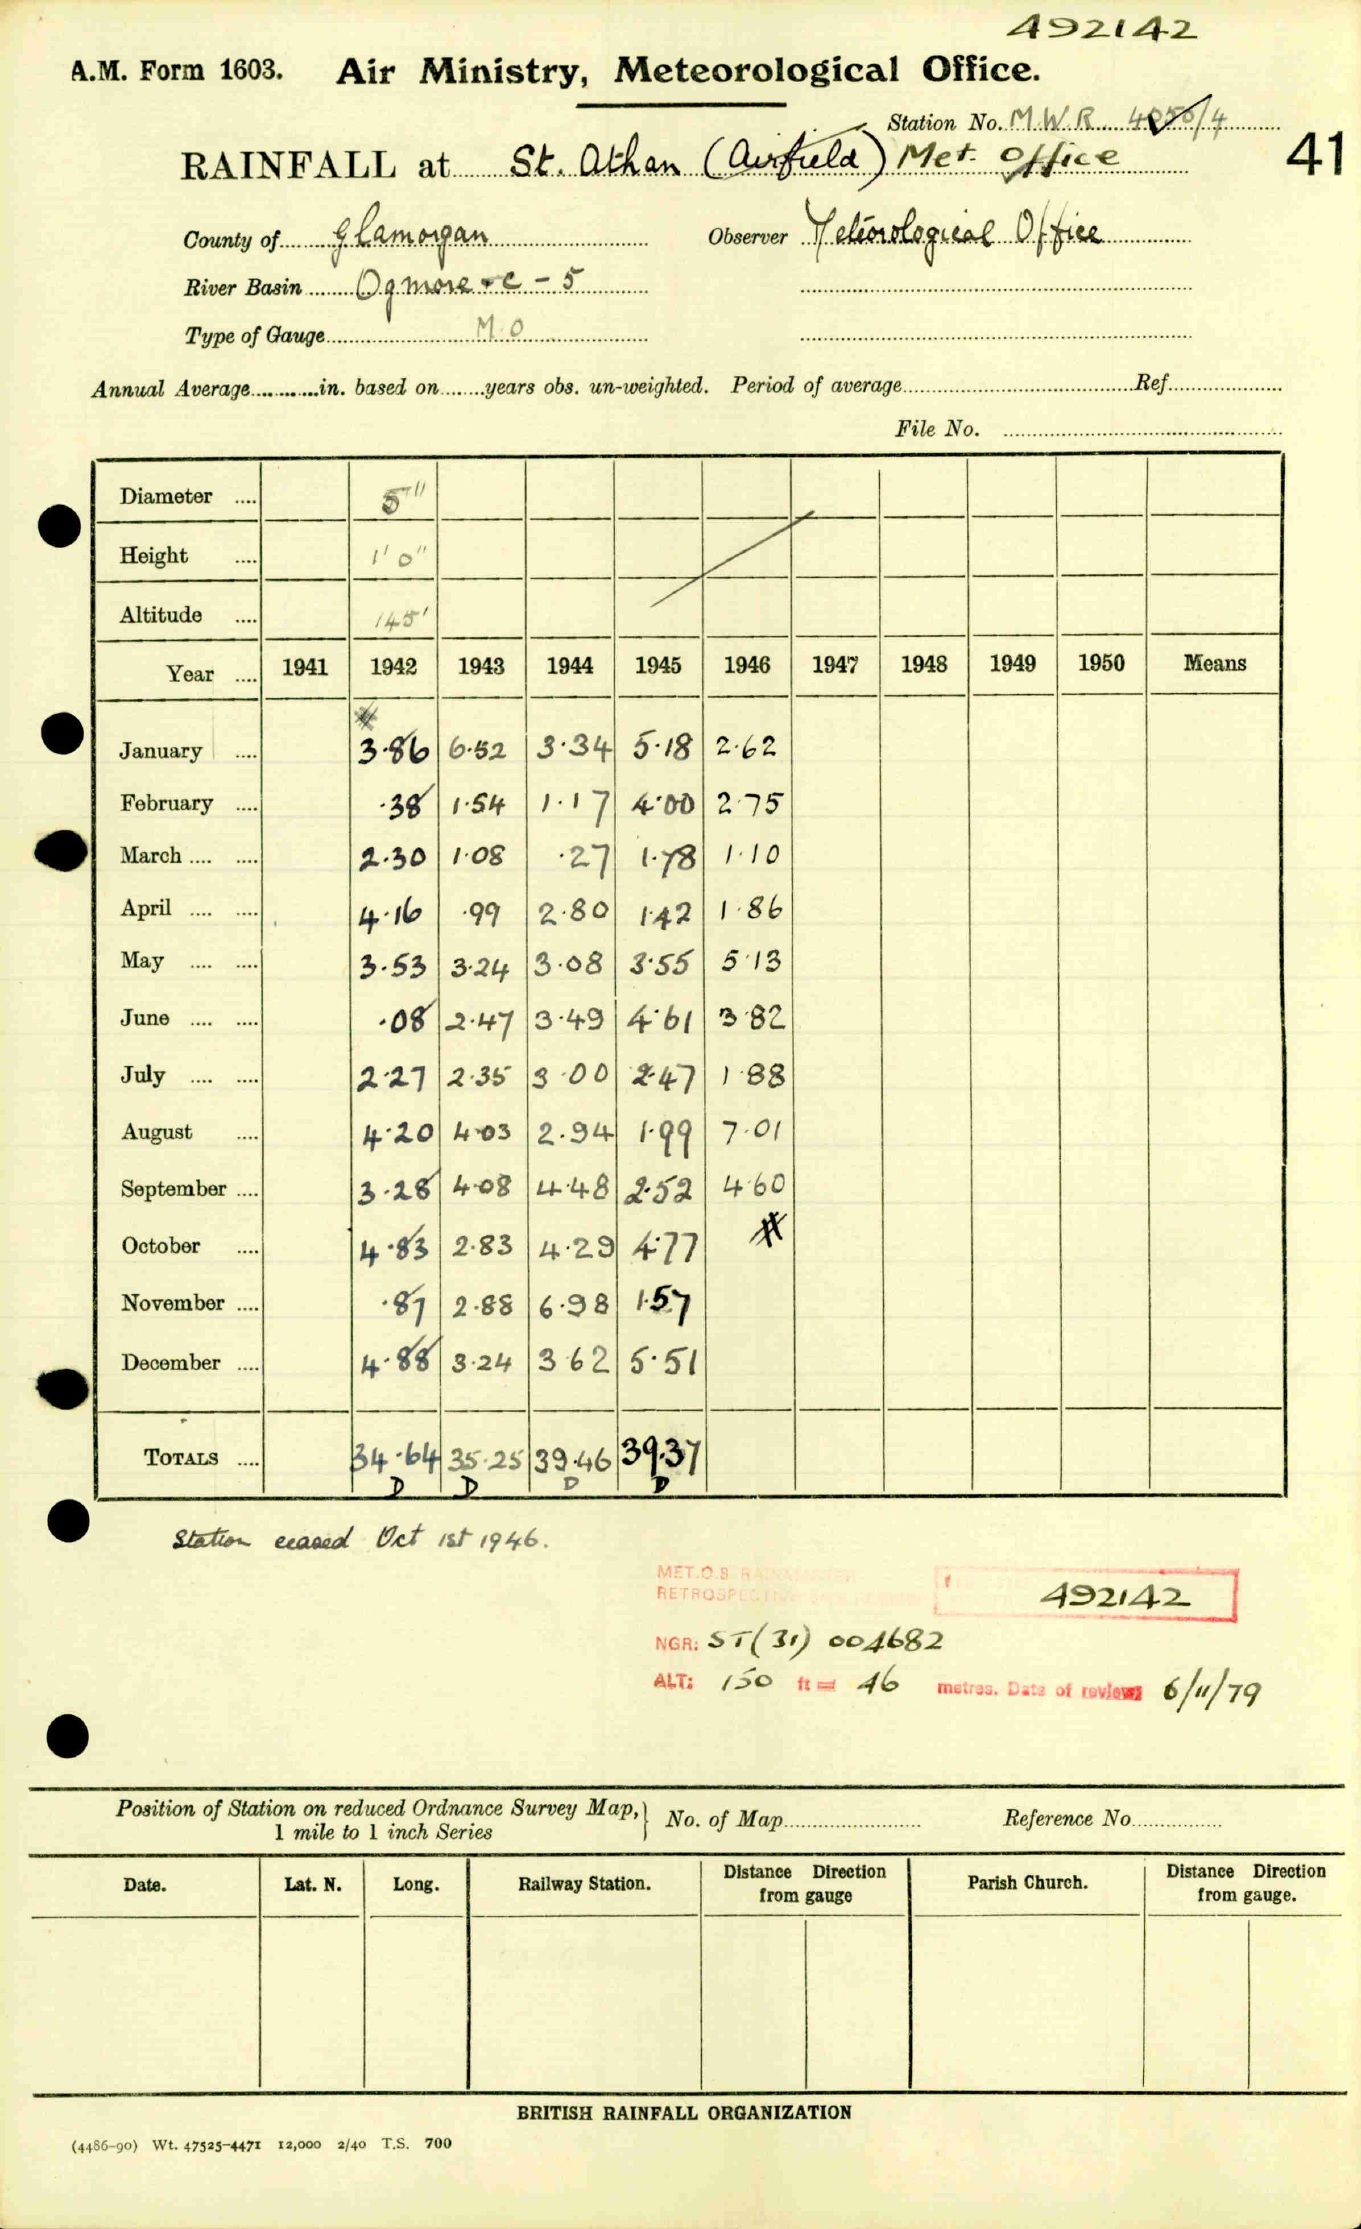 492142
A.M. Form 1603. Air Ministry, Meteorological Office.
Station No. M.W.R. 4050/4
RAINFALL at St. Athan (Airfield) Met. Office
41
County of Glamorgan Observer Meteorological Office
River Basin Ogmore &c - 5
Type of Gauge M.O
Annual Average in. based on years obs. un-weighted. Period of average Ref
File No.
Diameter 5"
Height 1' 0"
Altitude 145'
Year 1941 1942 1943 1944 1945 1946 1947 1948 1949 1950 Means
January 3.86 6.52 3.34 5.18 2.62
February .38 1.54 1.17 4.00 2.75
March 2.30 1.08 .27 1.78 1.10
April 4.16 .99 2.80 1.42 1.86
May 3.53 3.24 3.08 3.55 5.13
June .08 2.47 3.49 4.61 3.82
July 2.27 2.35 3.00 2.47 1.88
August 4.20 4.03 2.94 1.99 7.01
September 3.28 4.08 4.48 2.52 4.60
October 4.83 2.83 4.29 4.77
November .87 2.88 6.98 1.57
December 4.88 3.24 3.62 5.51
TOTALS 34.64 35.25 39.46 39.37
D D D D
Station ceased Oct 1st 1946.
MET.O.8
RETROSPECTIVE
492142
NGR: ST(31) 004682
ALT: 150 ft = 46 metres. Date of review: 6/11/79
Position of Station on reduced Ordnance Survey Map, 1 mile to 1 inch Series No. of Map Reference No
Date. Lat. N. Long. Railway Station. Distance Direction from gauge Parish Church. Distance Direction from gauge.
BRITISH RAINFALL ORGANIZATION
(4486-90) Wt. 47525-4471 12,000 2/40 T.S. 700